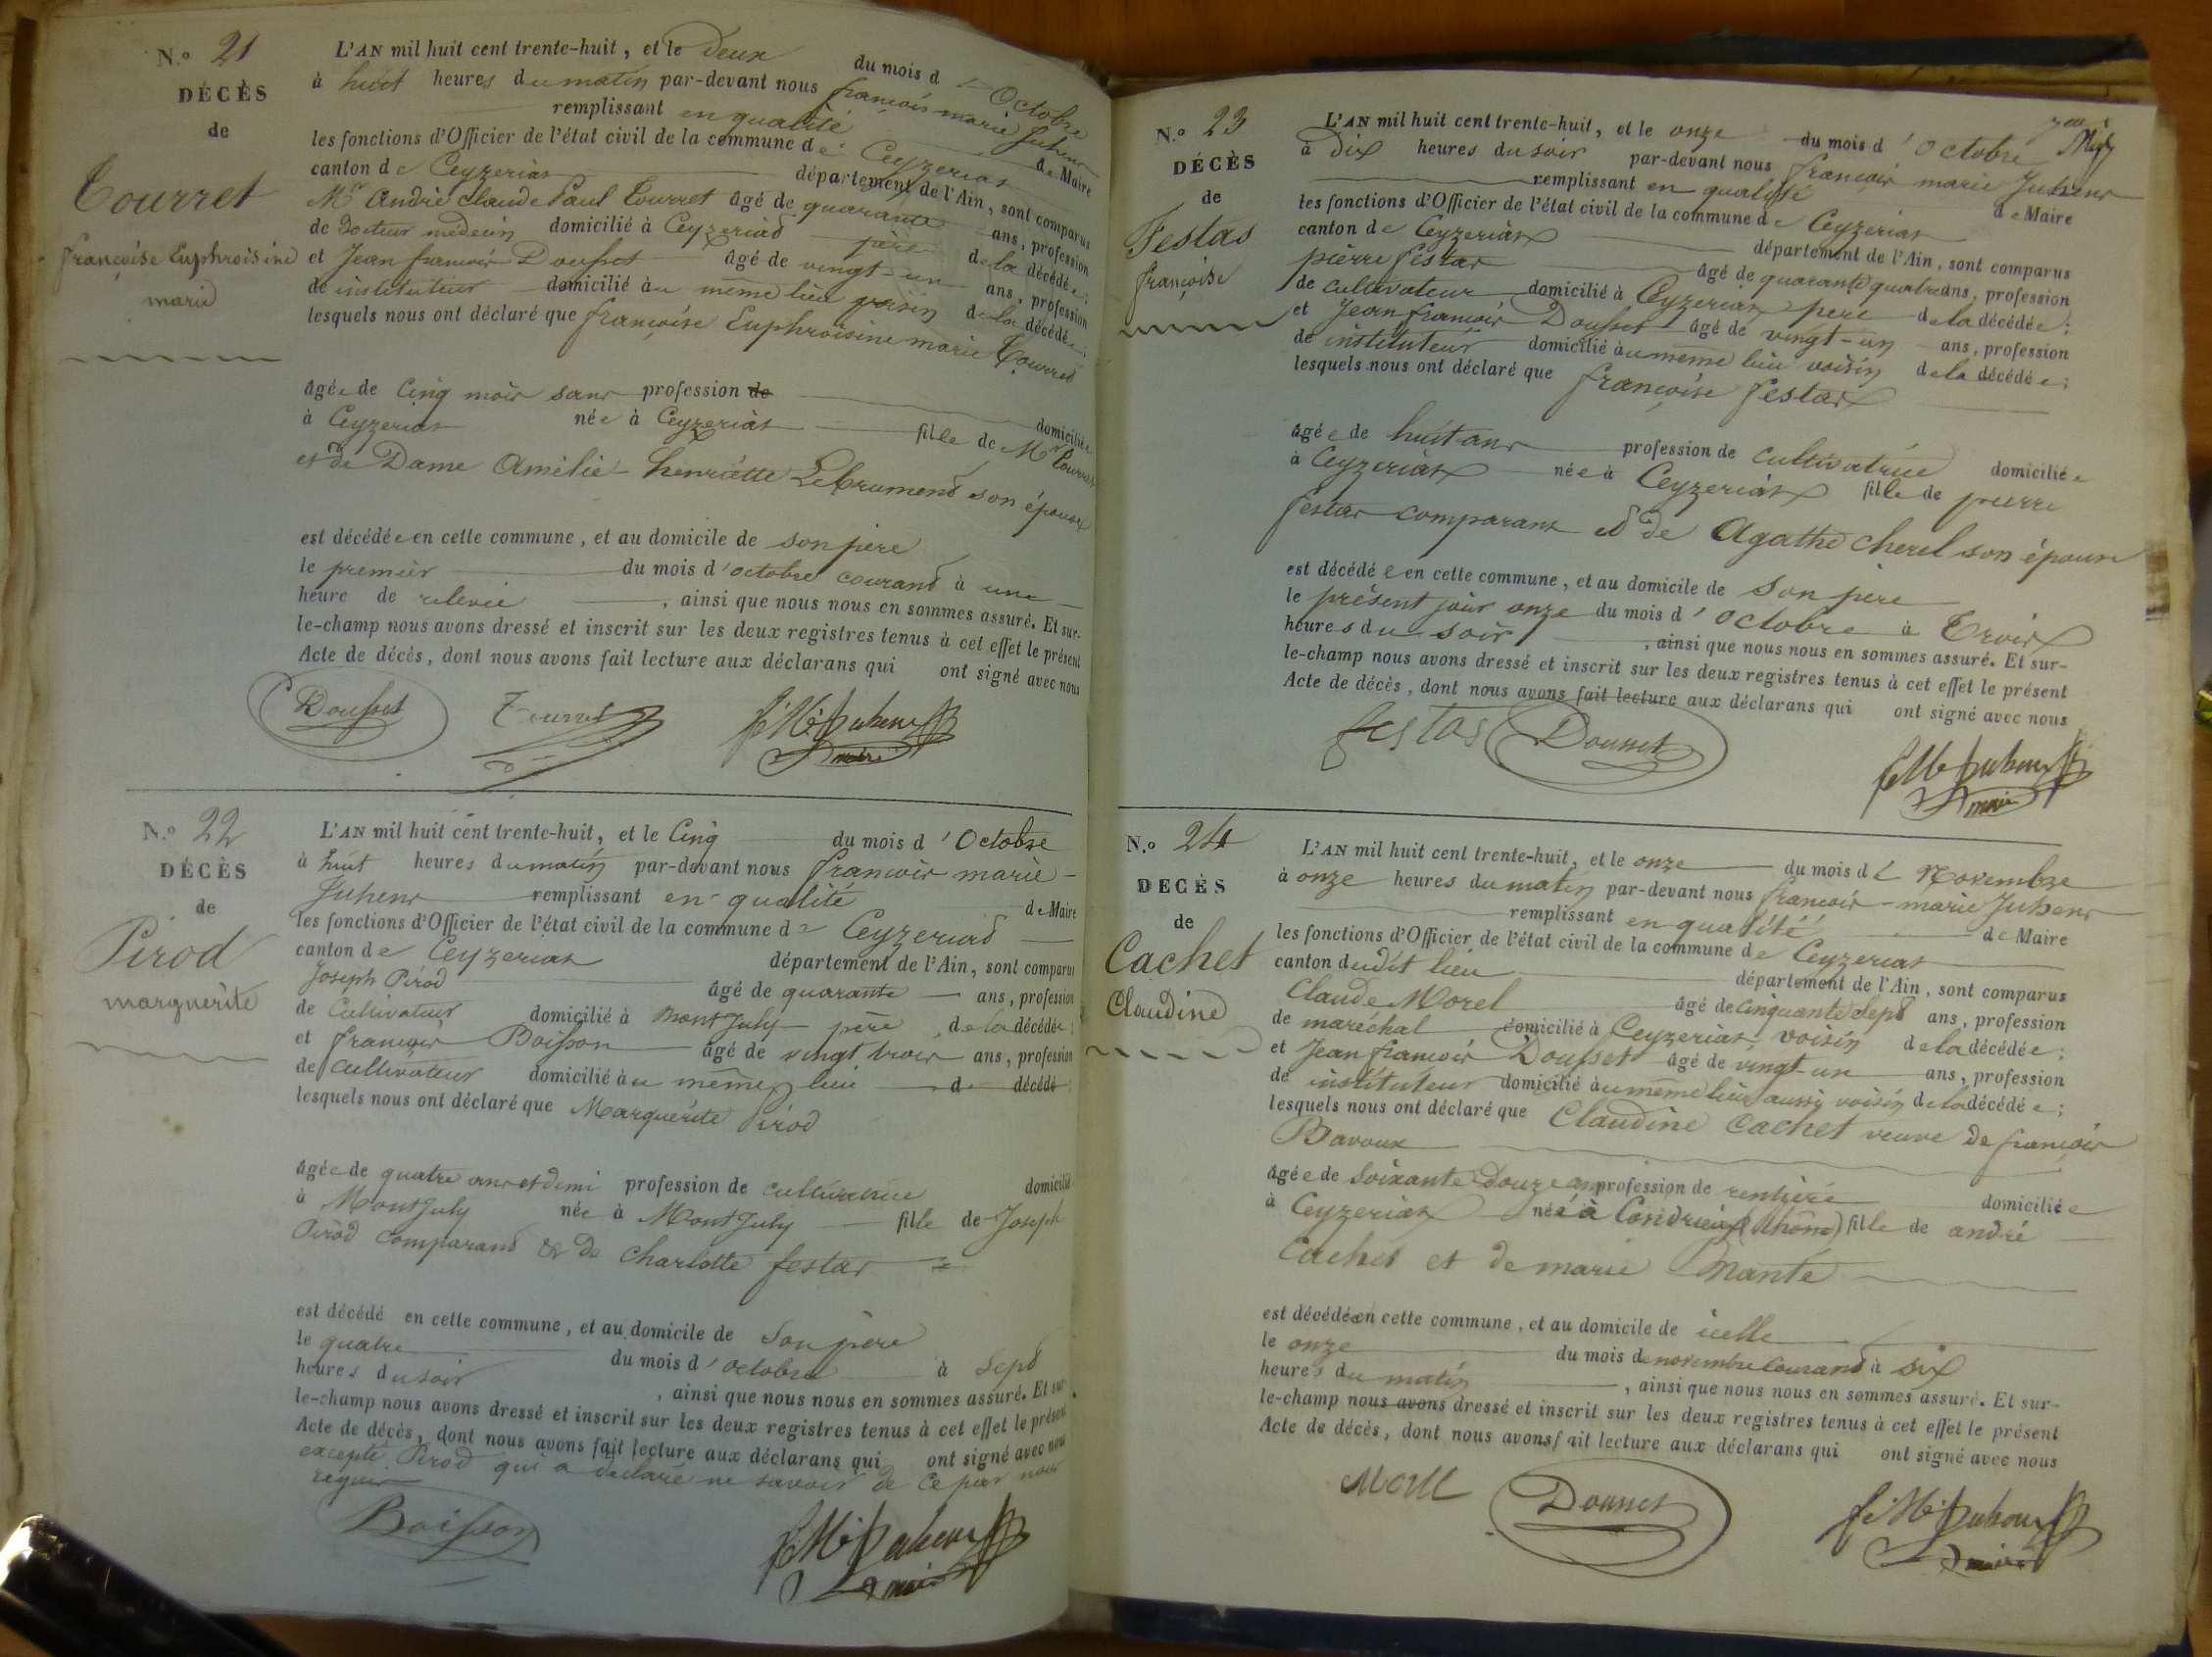 N.º 21
DÉCÈS
de
Tourret
françoise Euphroisine
marie
L'AN mil huit cent trente-huit, et le deux du mois d'Octobre
à huit heures du matin par-devant nous françois marie Juhenr
remplissant en qualité de Maire
les fonctions d'Officier de l'état civil de la commune de Ceyzeriat
canton de Ceyzeriat département de l'Ain, sont comparus
Mr André Claude Paul Tourret âgé de quarante ans, profession
de Docteur médecin domicilié à Ceyzeriat père de la décédée;
et Jean françois Dousset âgé de vingt-un ans, profession
de instituteur domicilié au même lieu voisin de la décédée;
lesquels nous ont déclaré que françoise Euphroisine marie Tourret
âgée de Cinq mois sans profession de domiciliée
à Ceyzeriat née à Ceyzeriat fille de Mr Tourret
et de Dame Amélie henriette son épouse
est décédée en cette commune, et au domicile de son père
le premier du mois d'octobre courant à une
heure de relevée, ainsi que nous nous en sommes assuré. Et sur-
le-champ nous avons dressé et inscrit sur les deux registres tenus à cet effet le présent
Acte de décès, dont nous avons fait lecture aux déclarans qui ont signé avec nous
Dousset Tourret
maire
N.º 22
DÉCÈS
de
Pirod
marguerite
L'AN mil huit cent trente-huit, et le Cinq du mois d'Octobre
à huit heures du matin par-devant nous françois marie
Juhenr remplissant en qualité de Maire
les fonctions d'Officier de l'état civil de la commune de Ceyzeriat
canton de Ceyzeriat département de l'Ain, sont comparus
Joseph Pirod âgé de quarante ans, profession
de Cultivateur domicilié à Mont July père de la décédée;
et françois Boisson âgé de vingt trois ans, profession
de Cultivateur domicilié au même lieu de décédé
lesquels nous ont déclaré que Marguerite Pirod
âgée de quatre ans et demi profession de cultivatrice domicilié
à Mont July née à Mont July fille de Joseph
Pirod comparant & de Charlotte festas
est décédé en cette commune, et au domicile de Son père
le quatre du mois d'octobre à Sept
heures du soir, ainsi que nous nous en sommes assuré. Et sur-
le-champ nous avons dressé et inscrit sur les deux registres tenus à cet effet le présent
Acte de décès, dont nous avons fait lecture aux déclarans qui ont signé avec nous
excepté Pirod qui a déclaré ne savoir de ce par nous
requis
Boisson
maire
N.º 23
DÉCÈS
de
Festas
françoise
L'AN mil huit cent trente-huit, et le onze du mois d'Octobre
à Dix heures du soir par-devant nous françois marie Juhenr
remplissant en qualité de Maire
les fonctions d'Officier de l'état civil de la commune de Ceyzeriat
canton de Ceyzeriat département de l'Ain, sont comparus
pierre festas âgé de quarante quatre ans, profession
de cultivateur domicilié à Ceyzeriat père de la décédée;
et Jean françois Dousset âgé de vingt-un ans, profession
de instituteur domicilié au même lieu voisin de la décédée;
lesquels nous ont déclaré que françoise festas
âgée de huit ans profession de cultivatrice domiciliée
à Ceyzeriat née à Ceyzeriat fille de pierre
festas comparant et de Agathe cherel son épouse
est décédée en cette commune, et au domicile de Son père
le présent jour onze du mois d'Octobre à Trois
heures du soir, ainsi que nous nous en sommes assuré. Et sur-
le-champ nous avons dressé et inscrit sur les deux registres tenus à cet effet le présent
Acte de décès, dont nous avons fait lecture aux déclarans qui ont signé avec nous
festas Dousset
maire
N.º 24
DECÈS
de
Cachet
Claudine
L'AN mil huit cent trente-huit, et le onze du mois de Novembre
à onze heures du matin par-devant nous françois-marie Juhenr
remplissant en qualité de Maire
les fonctions d'Officier de l'état civil de la commune de Ceyzeriat
canton dudit lieu département de l'Ain, sont comparus
Claude Morel âgé de cinquante Sept ans, profession
de maréchal domicilié à Ceyzeriat voisin de la décédée;
et Jean françois Dousset âgé de vingt-un ans, profession
de instituteur domicilié au même lieu aussi voisin de la décédée;
lesquels nous ont déclaré que Claudine Cachet veuve de françois
Bavoux
âgée de Soixante Douze ans profession de rentière domiciliée
à Ceyzeriat née à Condrieux (Rhône) fille de andré
Cachet et de marie Nanté
est décédée en cette commune, et au domicile de icelle
le onze du mois de novembre Courant à Six
heures du matin, ainsi que nous nous en sommes assuré. Et sur-
le-champ nous avons dressé et inscrit sur les deux registres tenus à cet effet le présent
Acte de décès, dont nous avons fait lecture aux déclarans qui ont signé avec nous
Morel Dousset
maire